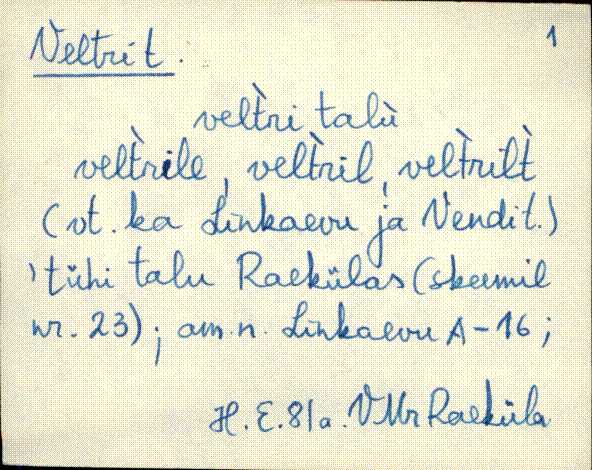 Veltri t. 1
velt̀ri talù
velt̀rile, velt̀ril, velt̀rilt̀
(vt. ka Linkaevu ja Vendit.)
'tühi talu Raekülas (skeemil
nr. 23); am.n. Linkaevu A-16;
H. E. 81a. VMr Raeküla